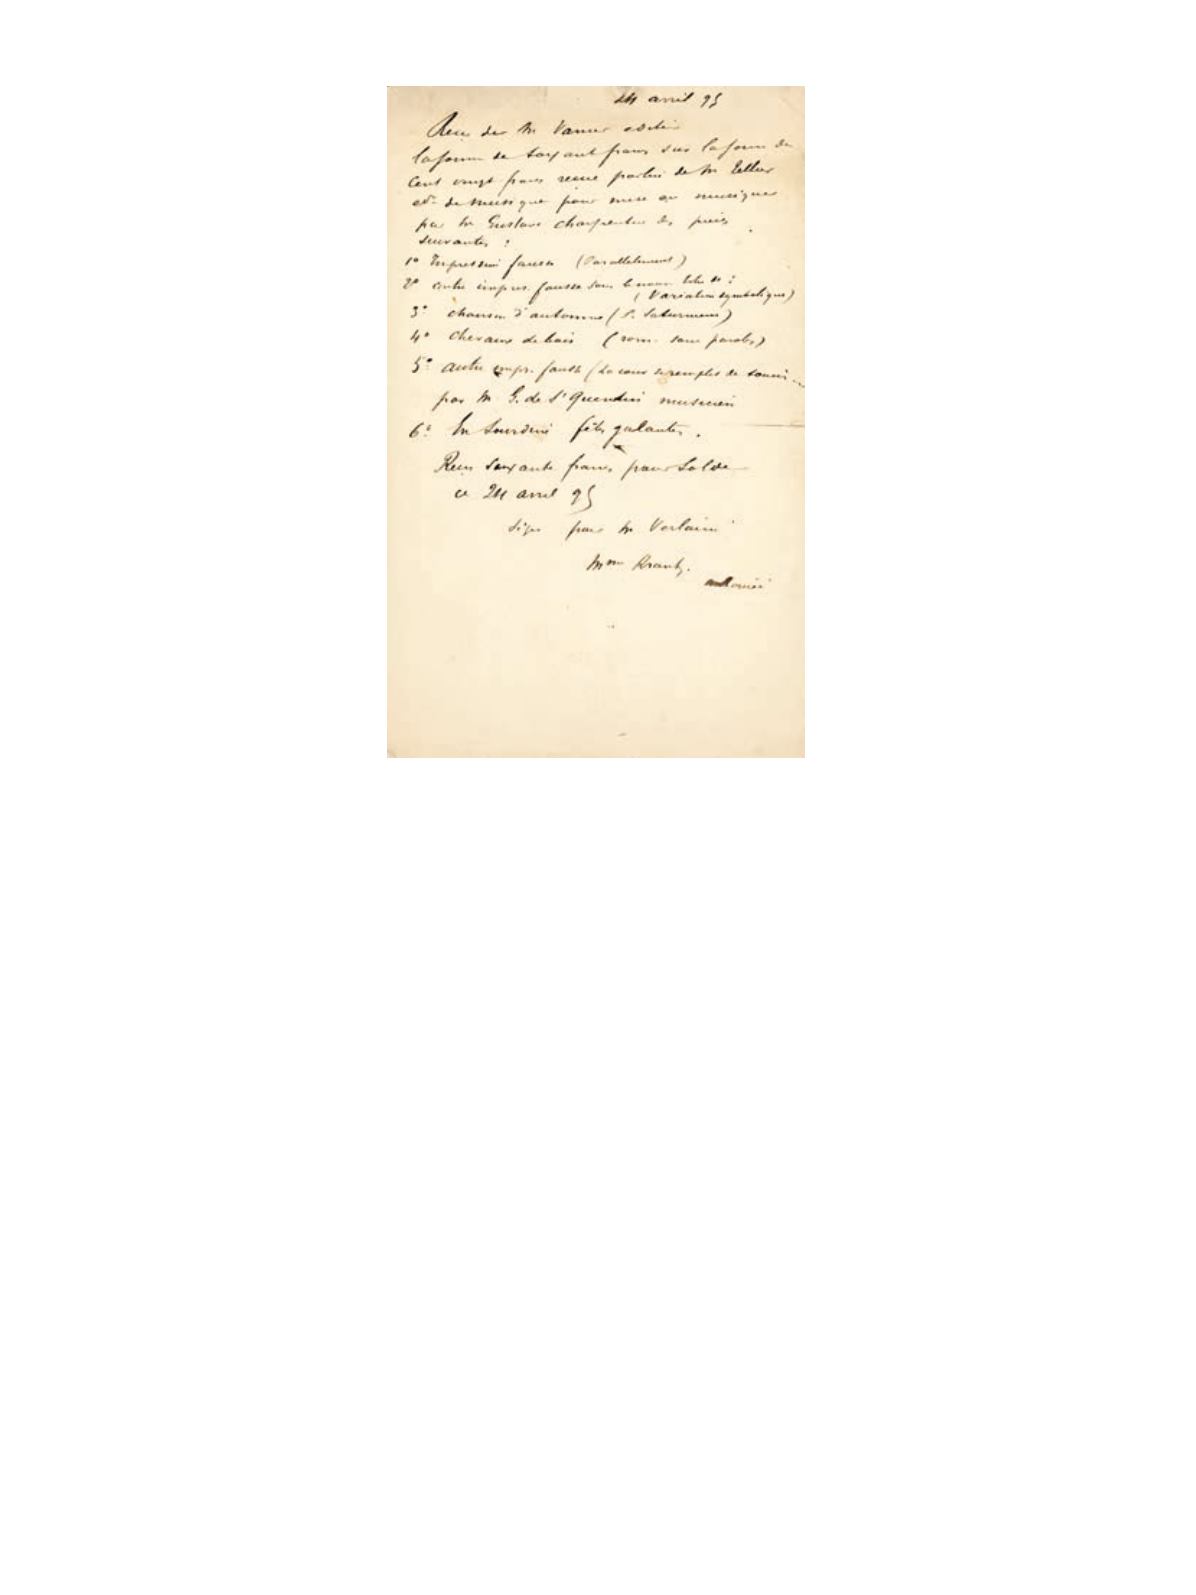 24 avril 95
Reçu de M Vanier editeur
la somme de soixante francs sur la somme de
cent vingt francs reçue par lui de M Tellier
edr de musique pour mise en musique
par M Gustave Charpentier des pièces
suivantes :
1° Impression fausse (Parallelement)
2° autre impres. fausse sous le nouv. titre de :
(Variation symbolique)
3° chanson d'automne (P. Saturniens)
4° Chevaux de bois (rom. sans paroles)
5° autre impr. fausse (
par M G. de St Quentin musicien
6° En Sourdine fêtes galantes.
Reçu soixante francs pour Solde
ce 24 avril 95
Signé pour M Verlaine
Mme Krantz.